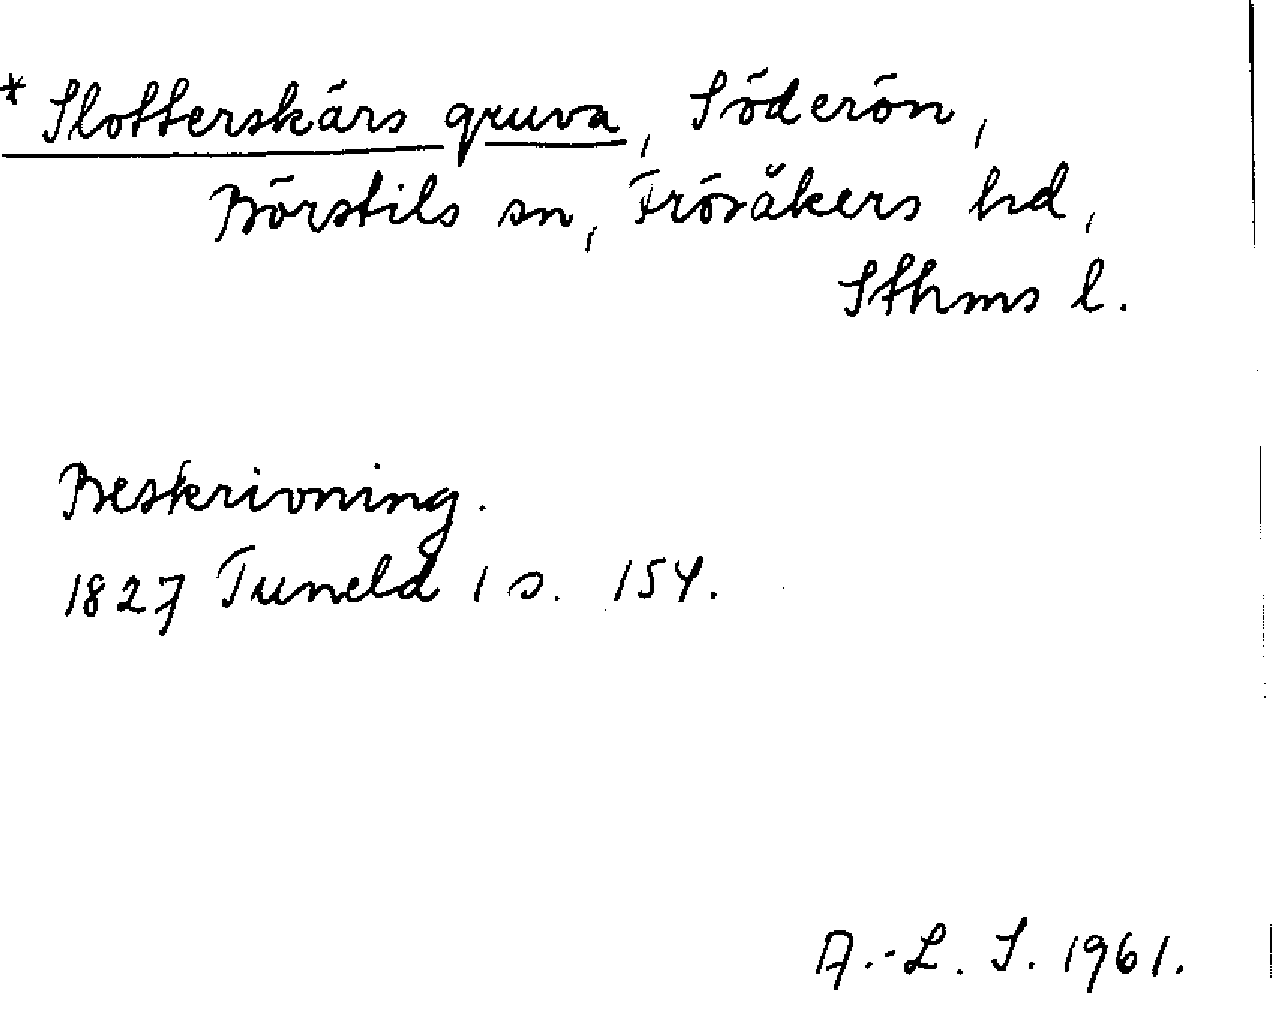 * Slotterskärs gruva, Söderön,
Börstils sn, Frösåkers hd,
Sthms l.
Beskrivning.
1827 Tuneld 1 s. 154.
A.-L. S. 1961.